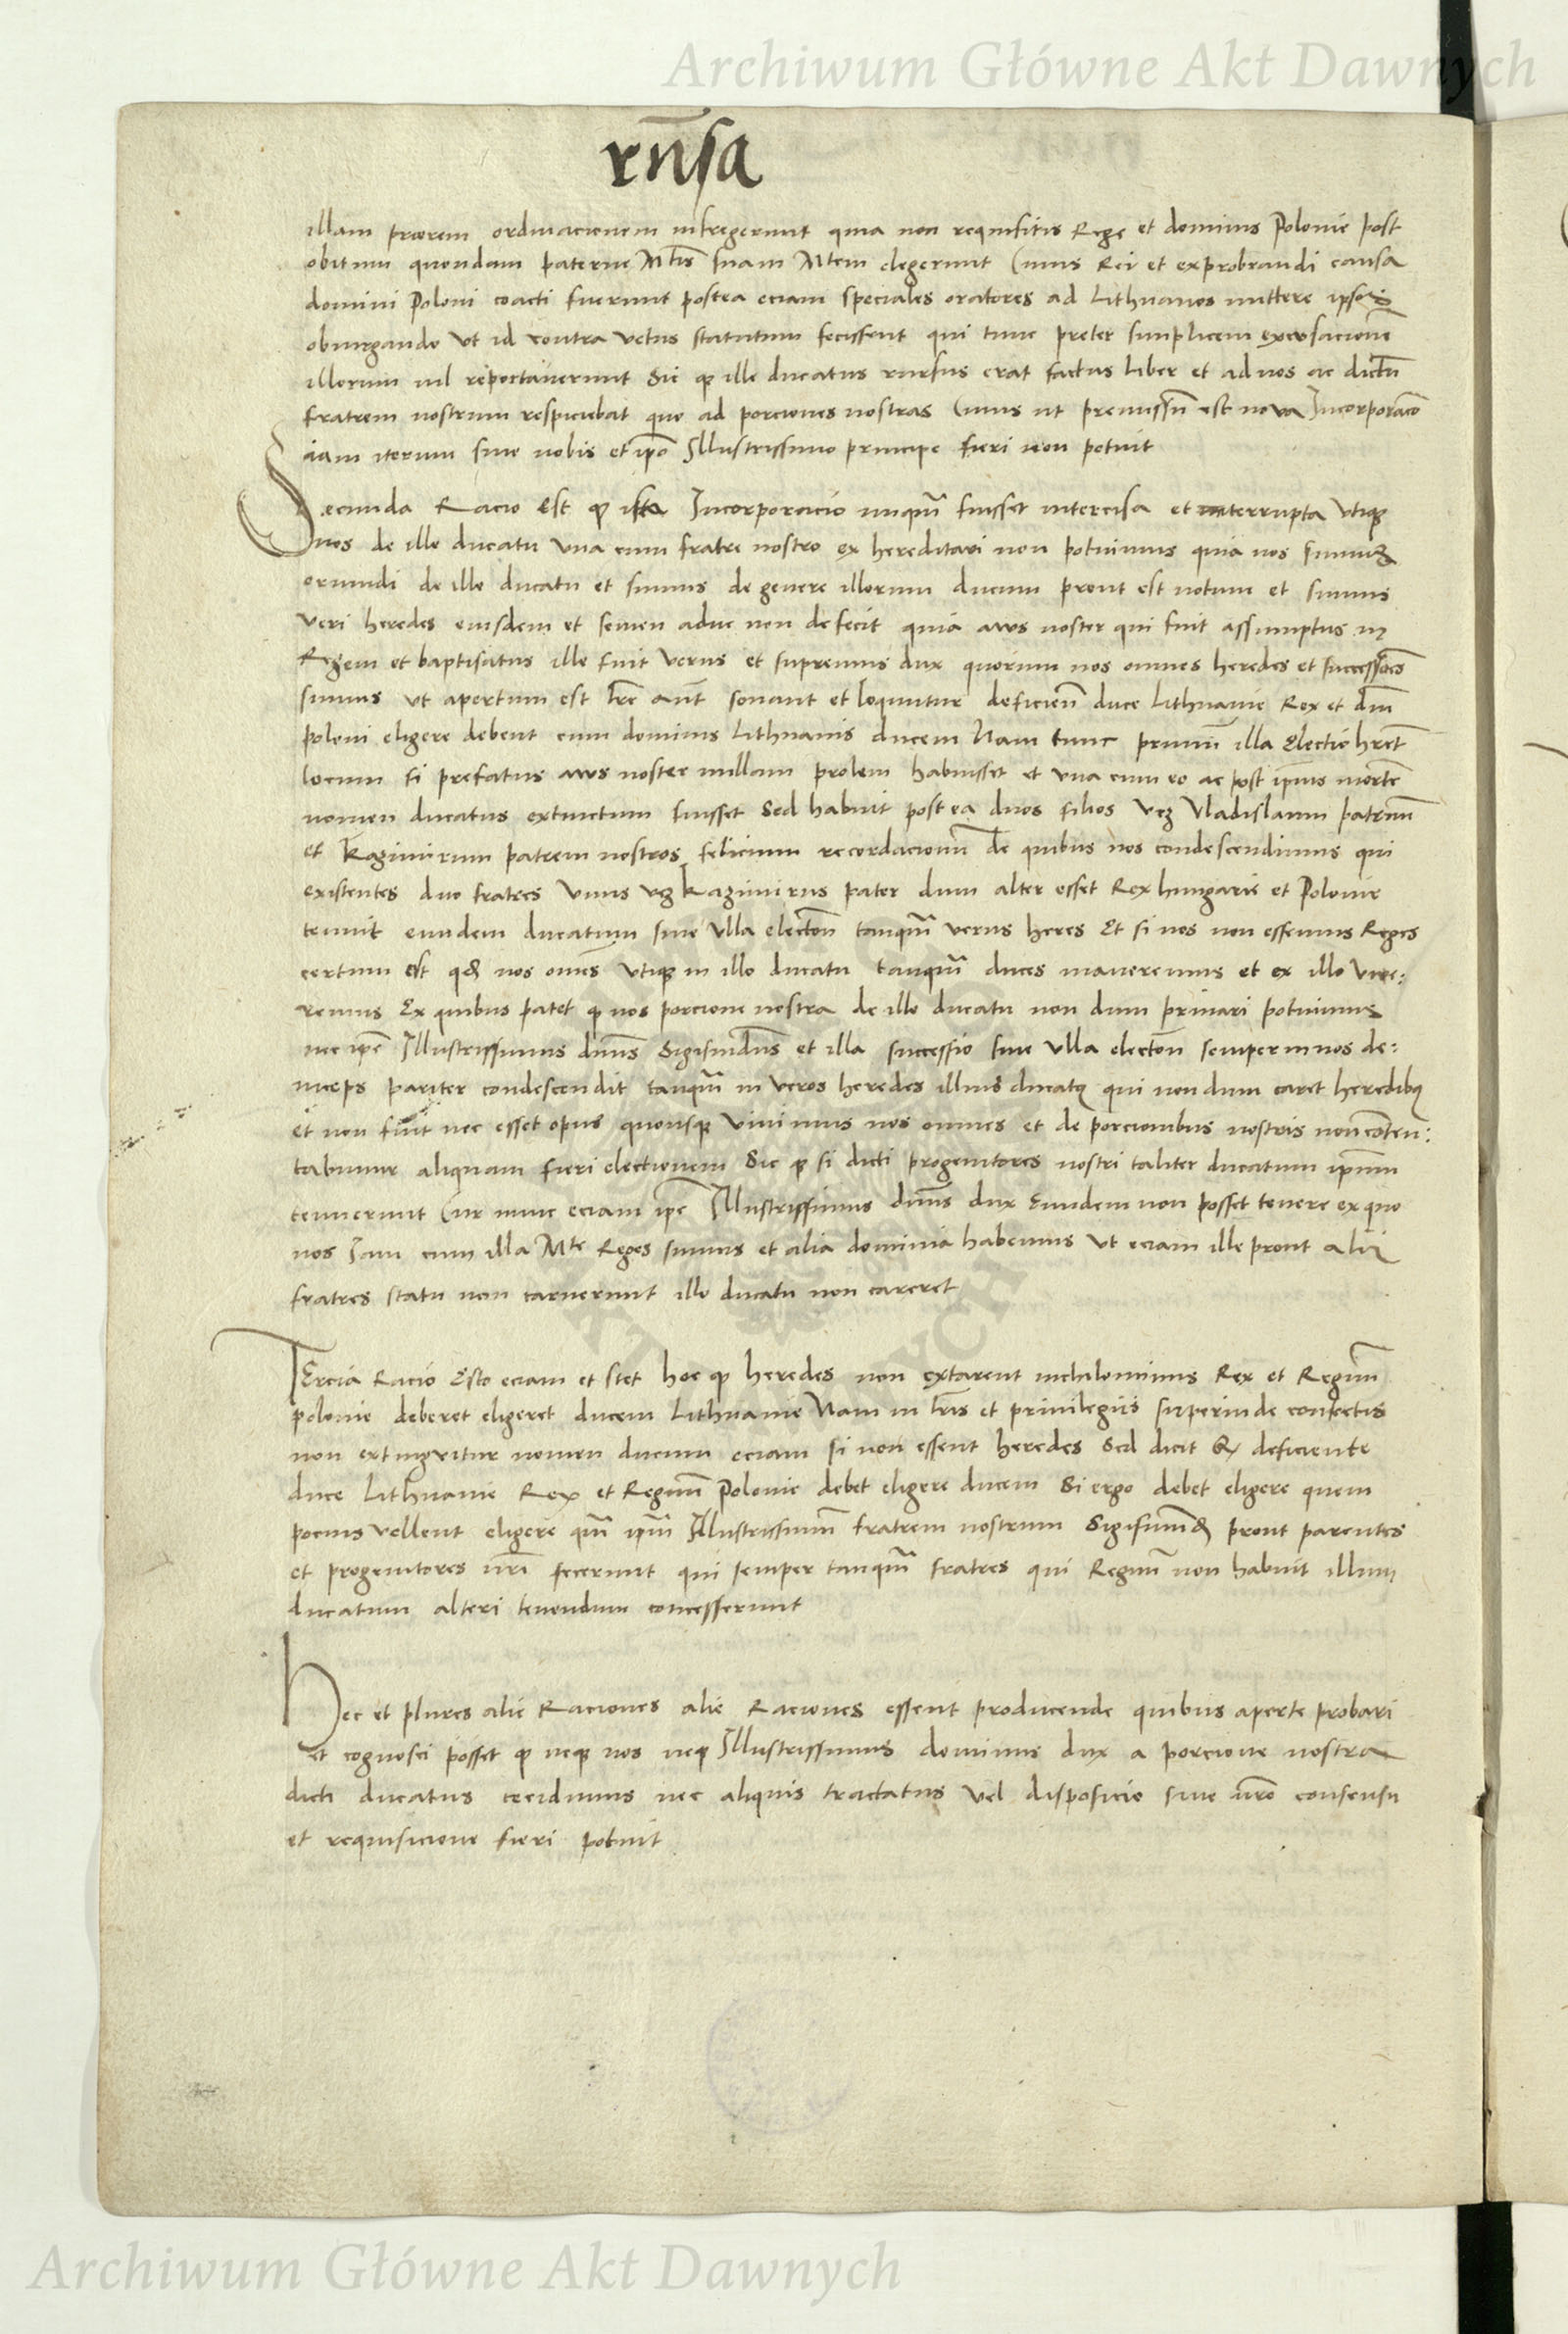 Archiwum Główne Akt Dawnych
rn̄sa
illam priorem ordinacionem infregerunt quia non requisitis Rege et dominis Polonie post
obitum quondam paterne Mtis suam Mtem elegerunt Cuius Rei et exprobrandi causa
domini Poloni coacti fuerunt postea eciam speciales oratores ad Lithuanos mittere ipsos
obiurgando ut id contra vetus statutum fecissent qui tunc preter simplicem excusacionē
illorum nil reportaverunt Sic ꝙ ille ducatus rursus erat factus liber et ad nos ac dictū
fratrem nostrum respiciebat quo ad porciones nostras Cuius ut premissū est nova Incorporacō
iam iterum sine nobis et ip̄o Illustrissimo principe fieri non potuit
Secunda Racio Est ꝙ ista Incorporacio nunquā fuisset intercisa et interrupta Utiqꝫ
nos de illo ducatu una cum fratre nostro ex hereditari non potuimus quia nos sumus
oriundi de illo ducatu et sumus de genere illorum ducum prout est notum et sumus
veri heredes eiusdem et semen aduc non defecit quia avus noster qui fuit assumptus in
Regem et baptisatus ille fuit verus et supremus dux quorum nos omnes heredes et successores
sumus ut apertum est lr̄e aut̄ sonant et loquuntur deficien̄ duce Lithuanie Rex et dn̄i
poloni eligere debent cum dominis Lithuanis ducem Nam tunc primū illa Electio hr̄et
locum si prefatus avus noster nullam prolem habuisset et una cum eo ac post ip̄ius mortē
nomen ducatus extinctum fuisset Sed habuit post ea duos filios vcꝫ Vladislaum patruū
et Kazimirum patrem nostros felicium recordacionū de quibus nos condescendimus qui
existentes duo fratres Unus vcꝫ Kazimirus pater dum alter esset Rex hungarie et Polonie
tenuit eundem ducatum sine ulla electōn tanquā verus heres Et si nos non essemus Reges
certum est qd nos om̄es utiqꝫ in illo ducatu tanquā duces maneremus et ex illo vive:
remus Ex quibus patet ꝙ nos porcione nostra de illo ducatu non dum privari potuimus
nec ip̄e Illustrissimus dn̄us Sigismūdus et illa successio sine ulla electōn semper in nos de:
inceps pariter condescendit tanquā in veros heredes illius ducatꝰ qui non dum caret heredibꝰ
et non fuit nec esset opus quousqꝫ vivimus nos omnes et de porcionibus nostris non cōten:
tabimur aliquam fieri electionem Sic ꝙ si dicti progenitores nostri taliter ducatum ip̄um
tenuerunt Cur nunc eciam ip̄e Illustrissimus dn̄us dux Eundem non posset tenere ex quo
nos Iam cum illa Mte Reges sumus et alia dominia habemus ut eciam ille prout alii
fratres statu non caruerunt illo ducatu non careret
TErcia Racio Esto eciam et stet hoc ꝙ heredes non extarent nichilominus Rex et Regnū
polonie deberet eligeret ducem Lithuanie Nam in lr̄is et privilegiis superinde confectis
non extinguitur nomen ducum eciam si non essent heredes Sed dicit Qꝫ deficiente
duce Lithuanie Rex et Regnū Polonie debet eligere ducem Si ergo debet eligere quem
pocius vellent eligere quā ip̄ū Illustrissimū fratrem nostrum Sigismūd prout parentes
et progenitores nr̄i fecerunt qui semper tanquā fratres qui Regnū non habuit illum
ducatum alteri tenendum concesserunt
Hec et plures alie Raciones alie Raciones essent producende quibus aperte probari
et cognosci posset ꝙ neqꝫ nos neqꝫ Illustrissimus dominus dux a porcione nostra
dicti ducatus cecidimus nec aliquis tractatus vel disposicio sine nr̄o consensu
et requisicione fieri potuit
Archiwum Główne Akt Dawnych